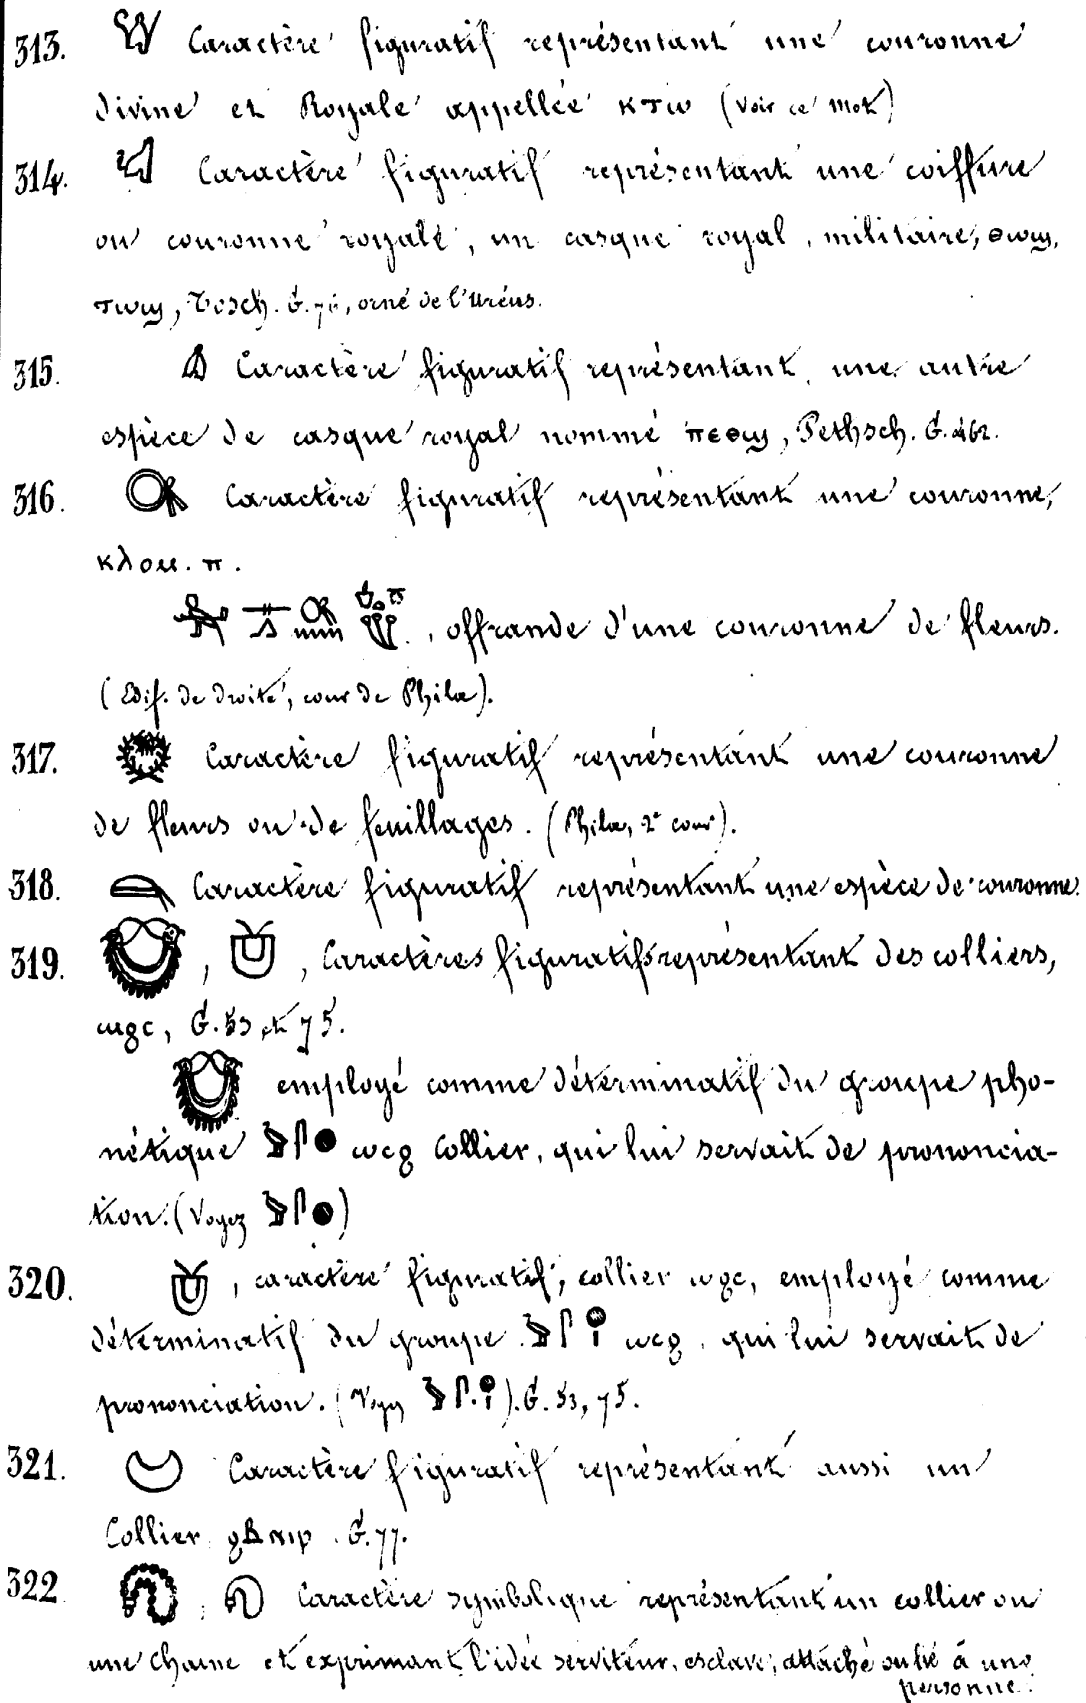 313. Caractère figuratif représentant une couronne
divine et Royale appellée ⲕⲧⲱ (Voir ce mot)
314. Caractère figuratif représentant une coiffure
ou couronne royale, un casque royal, militaire, ⲑⲱϣ,
ⲧⲱϣ, Tosch. G. 76, orné de l'Uréus.
315. Caractère figuratif représentant une autre
espèce de casque royal nommé ⲡⲉⲑϣ, Pethsch. G. 462.
316. Caractère figuratif représentant une couronne,
ⲕⲗⲟⲙ. ⲡ.
, offrande d'une couronne de fleurs.
(Edif. de droite, cour de Philæ).
317. Caractère figuratif représentant une couronne
de fleurs ou de feuillages. (Philæ, 2e cour).
318. Caractère figuratif représentant une espèce de couronne.
319. , , Caractères figuratifs représentant des colliers,
G. 53 et 75.
employé comme déterminatif du groupe pho-
nétique ⲱⲥϩ Collier, qui lui servait de prononcia-
tion. (Voyez )
320. , caractère figuratif, collier ⲱϩⲥ, employé comme
déterminatif du groupe ⲱⲥϩ, qui lui servait de
prononciation. (Voyez ). G. 53, 75.
321. Caractère figuratif représentant aussi un
Collier G. 77.
322 , Caractère symbolique représentant un collier ou
une chaine et exprimant l'idée serviteur, esclave, attaché ou lié à une
personne.